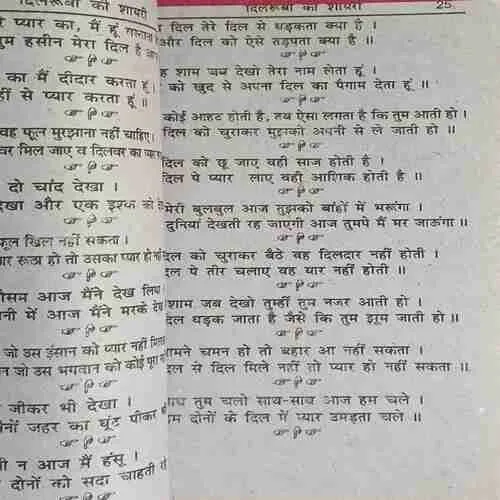 दिलरूबा की शायरी
प्यार का, मैं हूं
तुम हसीन मेरा दिल है
का मैं दीदार करता हूं ।
से प्यार करता हूं ॥
वह फूल मुरझाना नहीं चाहिए
मिल जाए व दिलवर का
दो चांद देखा ।
और एक इश्क को
फूल खिल नहीं सकता ।
रूठा हो तो उसका प्यार हो
आज मैंने देख लिया
में आज मैंने मरके
जो उस इंसान को प्यार नहीं
जो उस भगवान को कोई पूरा
जीकर भी देखा ।
जहर का घूंट पीकर
न आज मैं हंसू ।
दोनों को सदा चाहती
दिलरूबा की शायरी 25
दिल तेरे दिल से धड़कता क्या है ।
और दिल को ऐसे तड़पता क्या है ॥
शाम जब देखो तेरा नाम लेता हूं ।
को खुद से अपना दिल का पैगाम देता हूं ॥
कोई आहट होती है, तब ऐसा लगता है कि तुम आती हो ।
दिल को चुराकर मुझको अपनी से ले जाती हो ॥
दिल को छू जाए वही साज होती है ।
दिल पे प्यार लाए वही आशिक होती है ॥
मेरी बुलबुल आज तुझको बांहों में भरूंगा ।
दुनियां देखती रह जाएगी आज तुमपे मैं मर जाऊंगा ॥
दिल को चुराकर बैठे वह दिलदार नहीं होती ।
दिल पे तीर चलाए वह यार नहीं होती ॥
शाम जब देखो तुम्हीं तुम नजर आती हो ।
दिल धड़क जाता है जैसे कि तुम झूम जाती हो ॥
सामने चमन हो तो बहार आ नहीं सकता ।
दिल से दिल मिले नहीं तो प्यार हो नहीं सकता ॥
साथ तुम चलो साथ-साथ आज हम चले ।
हम दोनों के दिल में प्यार उमड़ता चले ॥